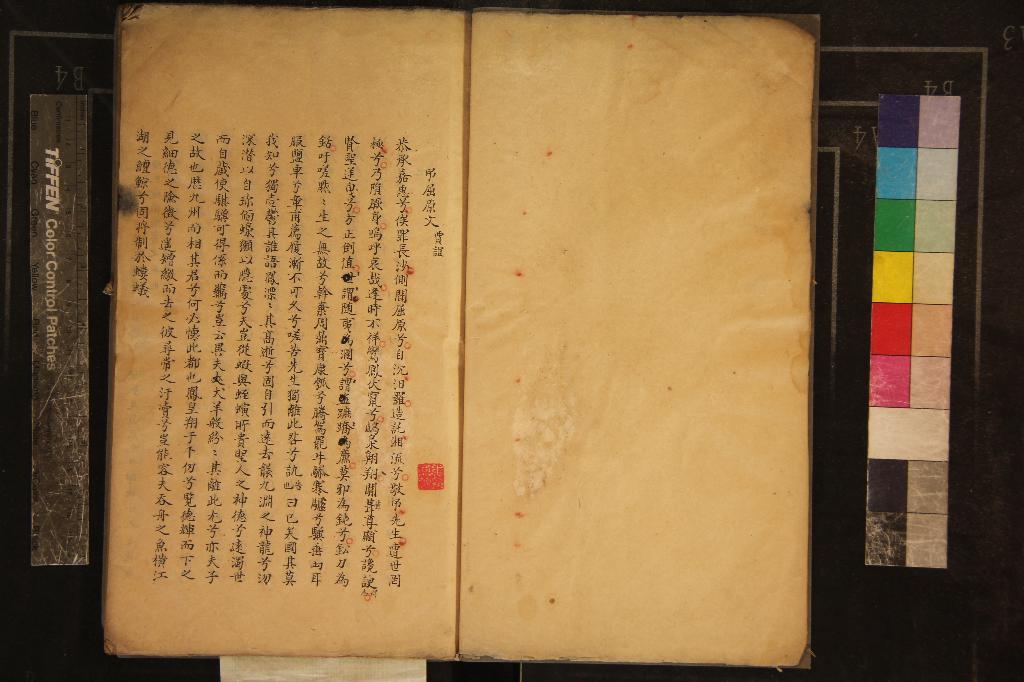 弔屈原文 賈誼
恭承嘉惠兮俟罪長沙側聞屈原兮自沉汨羅造託湘流兮敬弔先生遭世罔
極兮乃隕厥身嗚呼哀哉逢時不祥鸞鳳伏竄兮鴟梟翱翔闒茸尊顯兮讒諛
賢聖逆曳兮方正倒值世謂随夷為溷兮謂蹠蹻為廉莫邪為鈍兮鉛刀為
銛吁嗟默〻生之無故兮斡棄周鼎寶康瓠兮騰駕罷牛驂蹇驢兮驥垂兩耳
服鹽車兮章甫薦履漸不可久兮嗟苦先生獨離此咎兮訊曰已矣國其莫
我知兮獨壹鬱其誰語鳳漂〻其高逝兮固自引而遠去襲九淵之神龍兮沕
深潛以自珍偭蟂獺以隱處兮夫豈從蝦與蛭螾所貴聖人之神德兮遠濁世
而自藏使騏驥可得係而羈兮豈云異夫犬羊般紛〻其離此尤兮亦夫子
之故也歷九州而相其君兮何必懷此都也鳳皇翔于千仞兮覽德輝而下之
見細德之險微兮遙增繳而去之彼尋常之汙瀆兮豈能容夫吞舟之魚橫江
湖之鱣鯨兮固將制於螻蟻
TIFFEN Color Control Patches
B4
A4
B4
A4